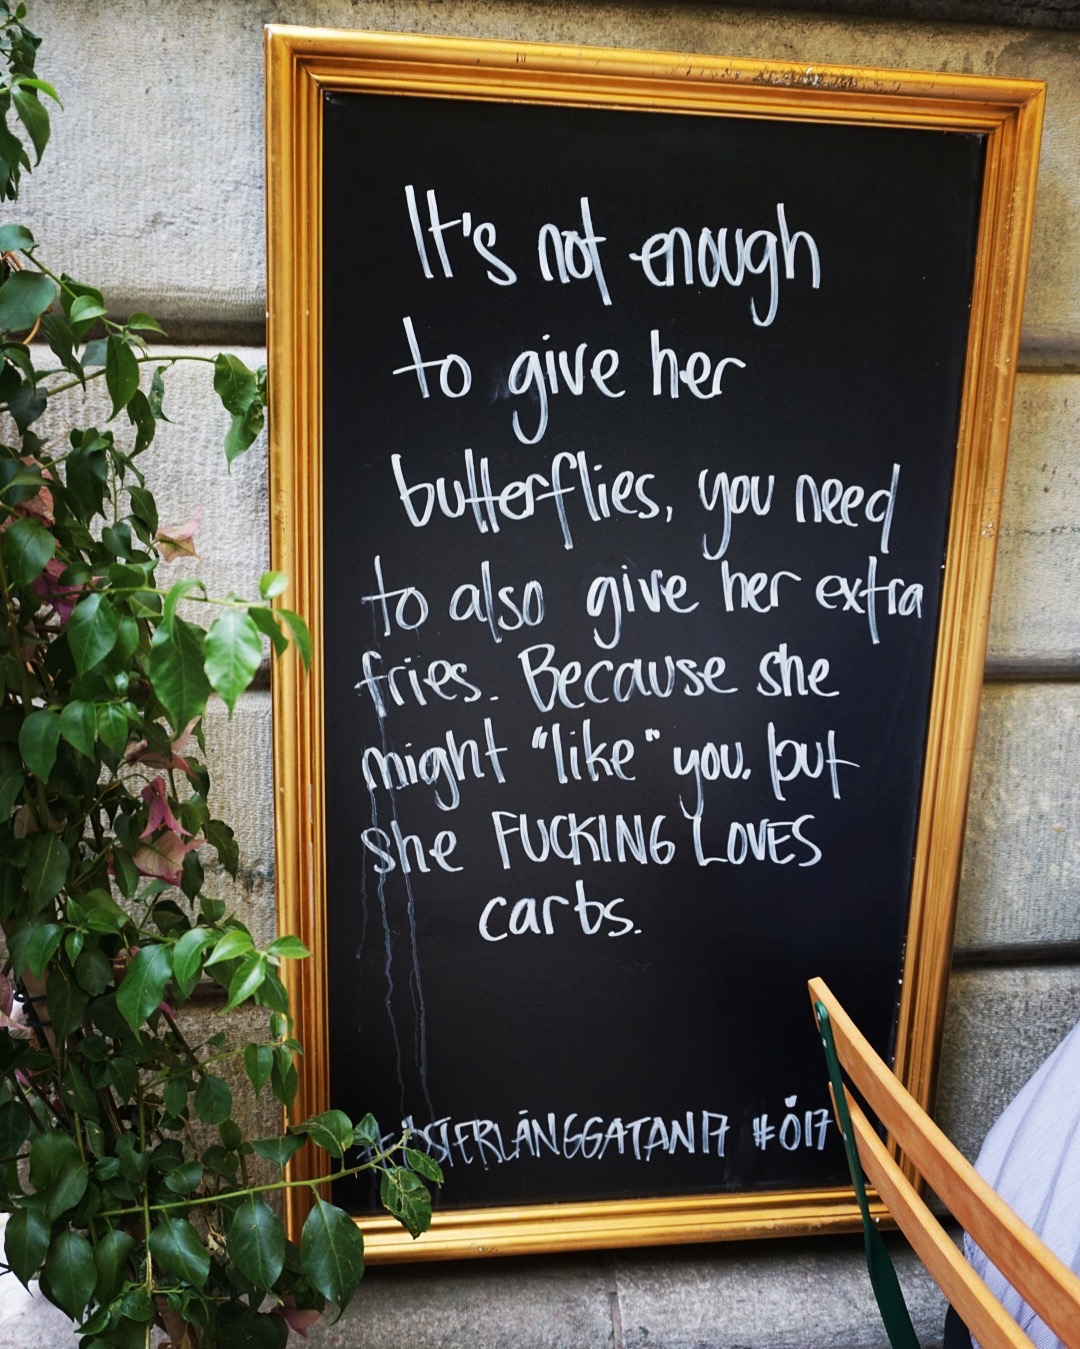 It's not enough
to give her
butterflies, you need
to also give her extra
fries. Because she
might "like" you. but
she FUCKING LOVES
carbs.
#ÖSTERLÅNGGATAN17 #Ö17